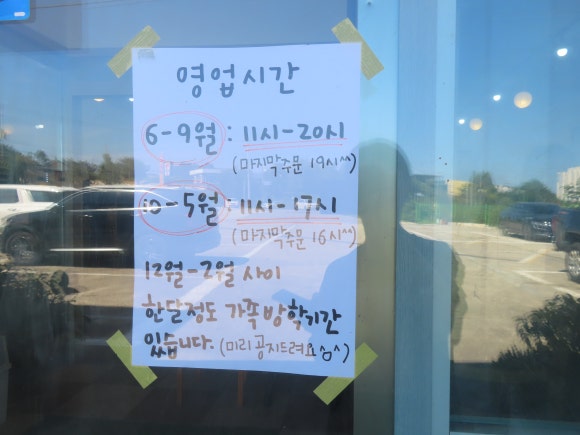 영업시간
6-9월 : 11시-20시
(마지막주문 19시^^)
10-5월 : 11시-17시
(마지막주문 16시^^)
12월-2월 사이
한달정도 가족방학기간
있습니다. (미리 공지드려요^^)